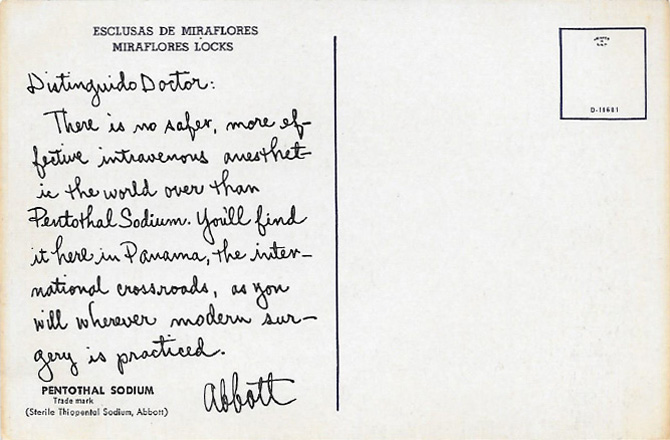 ESCLUSAS DE MIRAFLORES
MIRAFLORES LOCKS
Distinguido Doctor:
There is no safer, more ef-
fective intravenous anesthet-
ic the world over than
Pentothal Sodium. You'll find
it here in Panama, the inter-
national crossroads, as you
will wherever modern sur-
gery is practiced.
Abbott
PENTOTHAL SODIUM
Trade mark
(Sterile Thiopental Sodium, Abbott)
D-18681